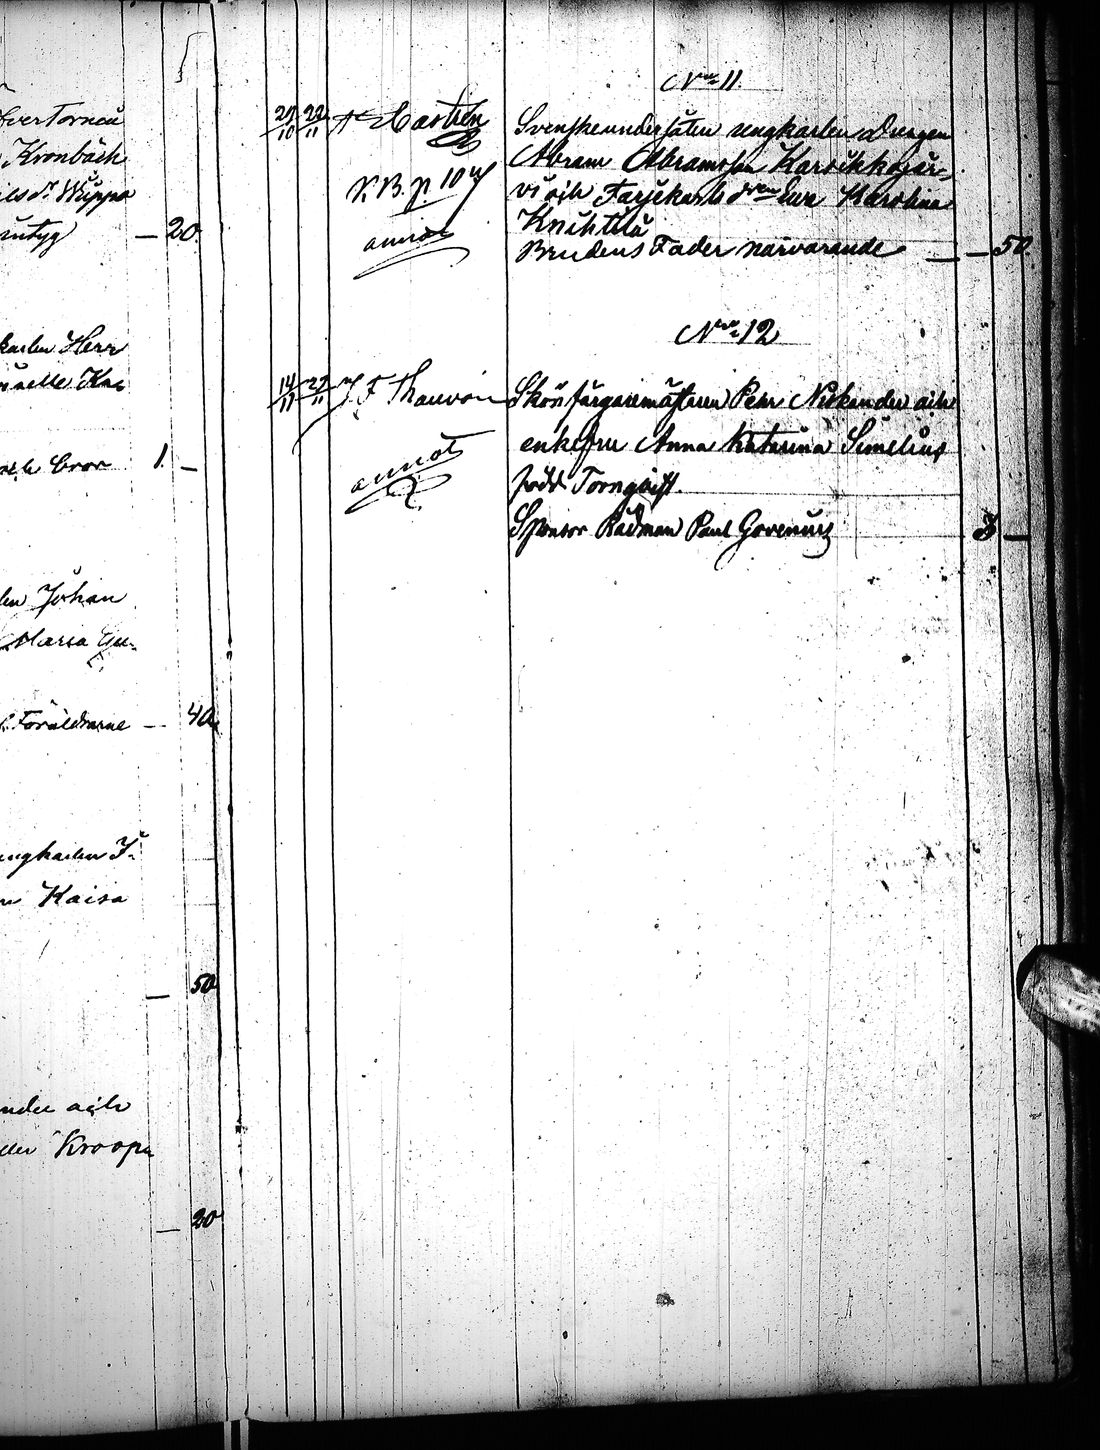 Öfver Torneå
Kronbäck
Wuppo
intyg — 20.
karlen Herr
Bror 1. —
Johan
Maria
Föräldrarne — 40.
ungkarlen J.
Kaisa
— 50
och
Kroopa
— 20
Nro 11.
29/10 22/11 A Castrén
K.B. p. 107
annot
Svenske undersåten ungkarlen Drengen
Abram Abramsson Karsikkojär-
vi och Färjekarls dren Ewa Karolina
Knihtilä
Brudens Fader närvarande — — 50.
Nro 12
14/11 22/11 J F Thauvón
annot
Skönfärgaremästaren Pehr Niskander och
enkefru Anna Katarina Simelius
född Tornqvist.
Sponsor Rådman Paul Govenius 3 —